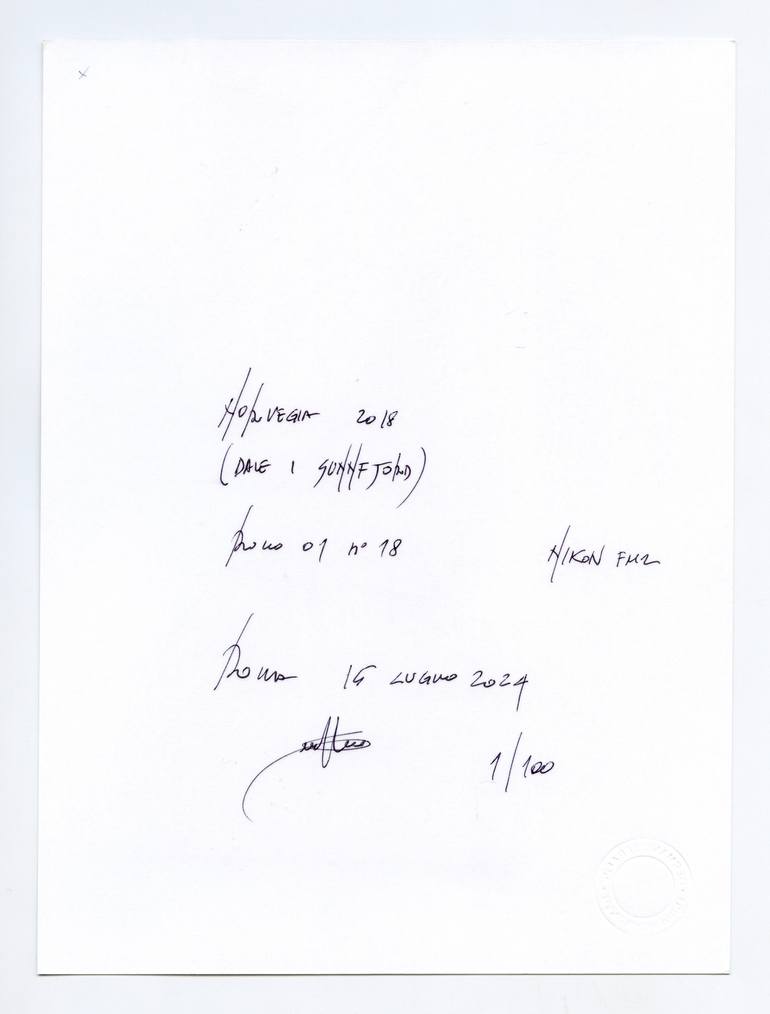 x
NORVEGIA 2018
(DALE I SUNNFJORD)
Rullo 01 n° 18
NIKON FM2
Roma 15 LUGLIO 2024
1/100